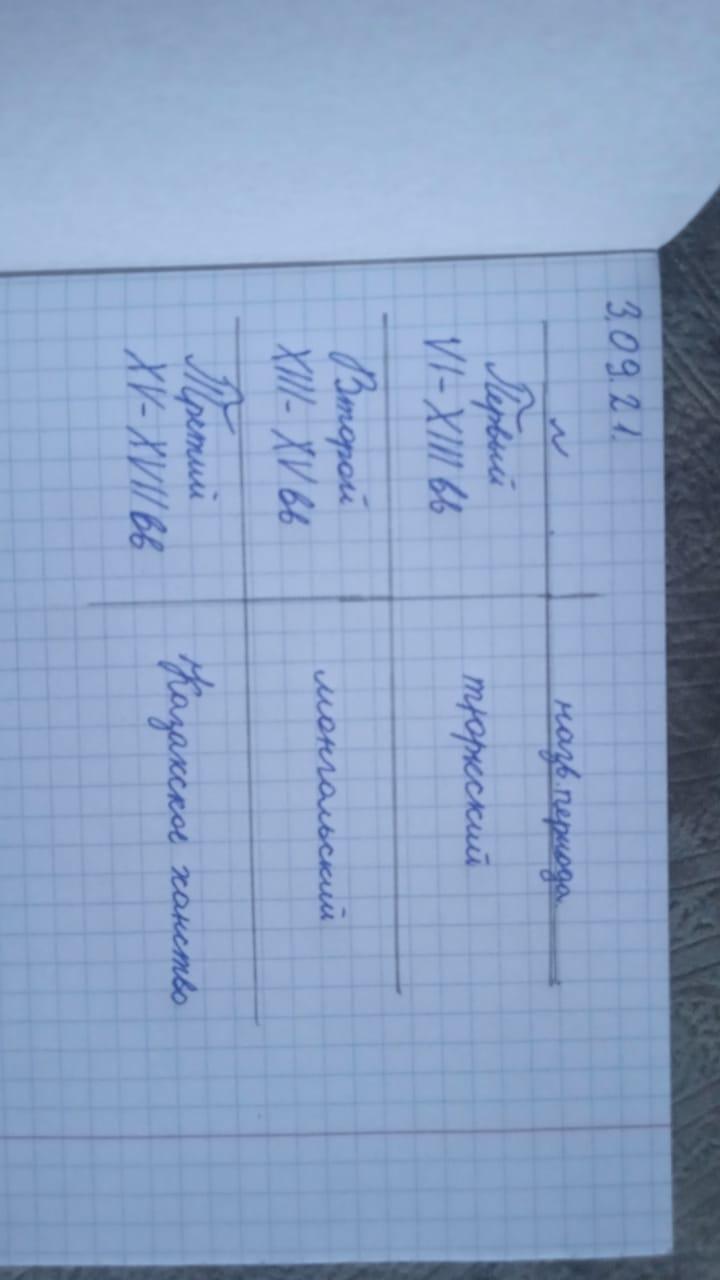 3.09.21.
N назв. периода
Первый тюркский
VI - XIII вв
Второй монгольский
XIII - XV вв
Третий Казахское ханство
XV - XVII вв